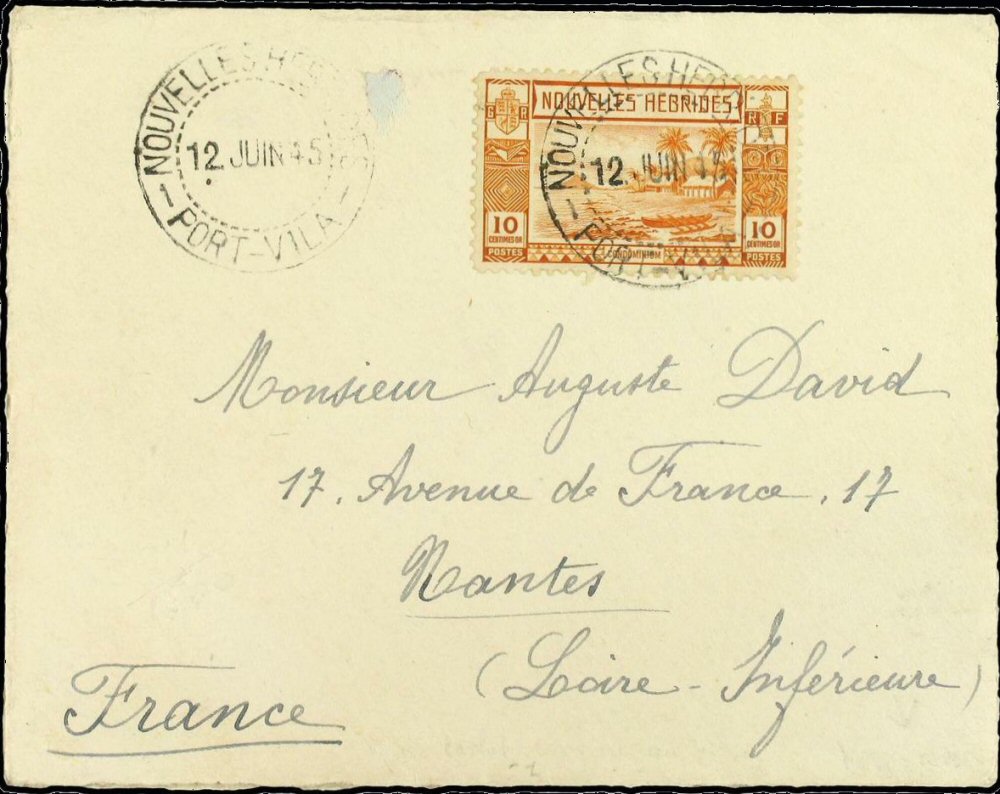 NOUVELLES HEBRIDES
12 JUIN 45
PORT-VILA
G R
NOUVELLES HEBRIDES
R F
10
CENTIMES OR
POSTES
CONDOMINIUM
10
CENTIMES OR
POSTES
NOUVELLES HEBRIDES
12 JUIN 45
PORT-VILA
Monsieur Auguste David
17. Avenue de France. 17
Nantes
(Loire-Inférieure)
France